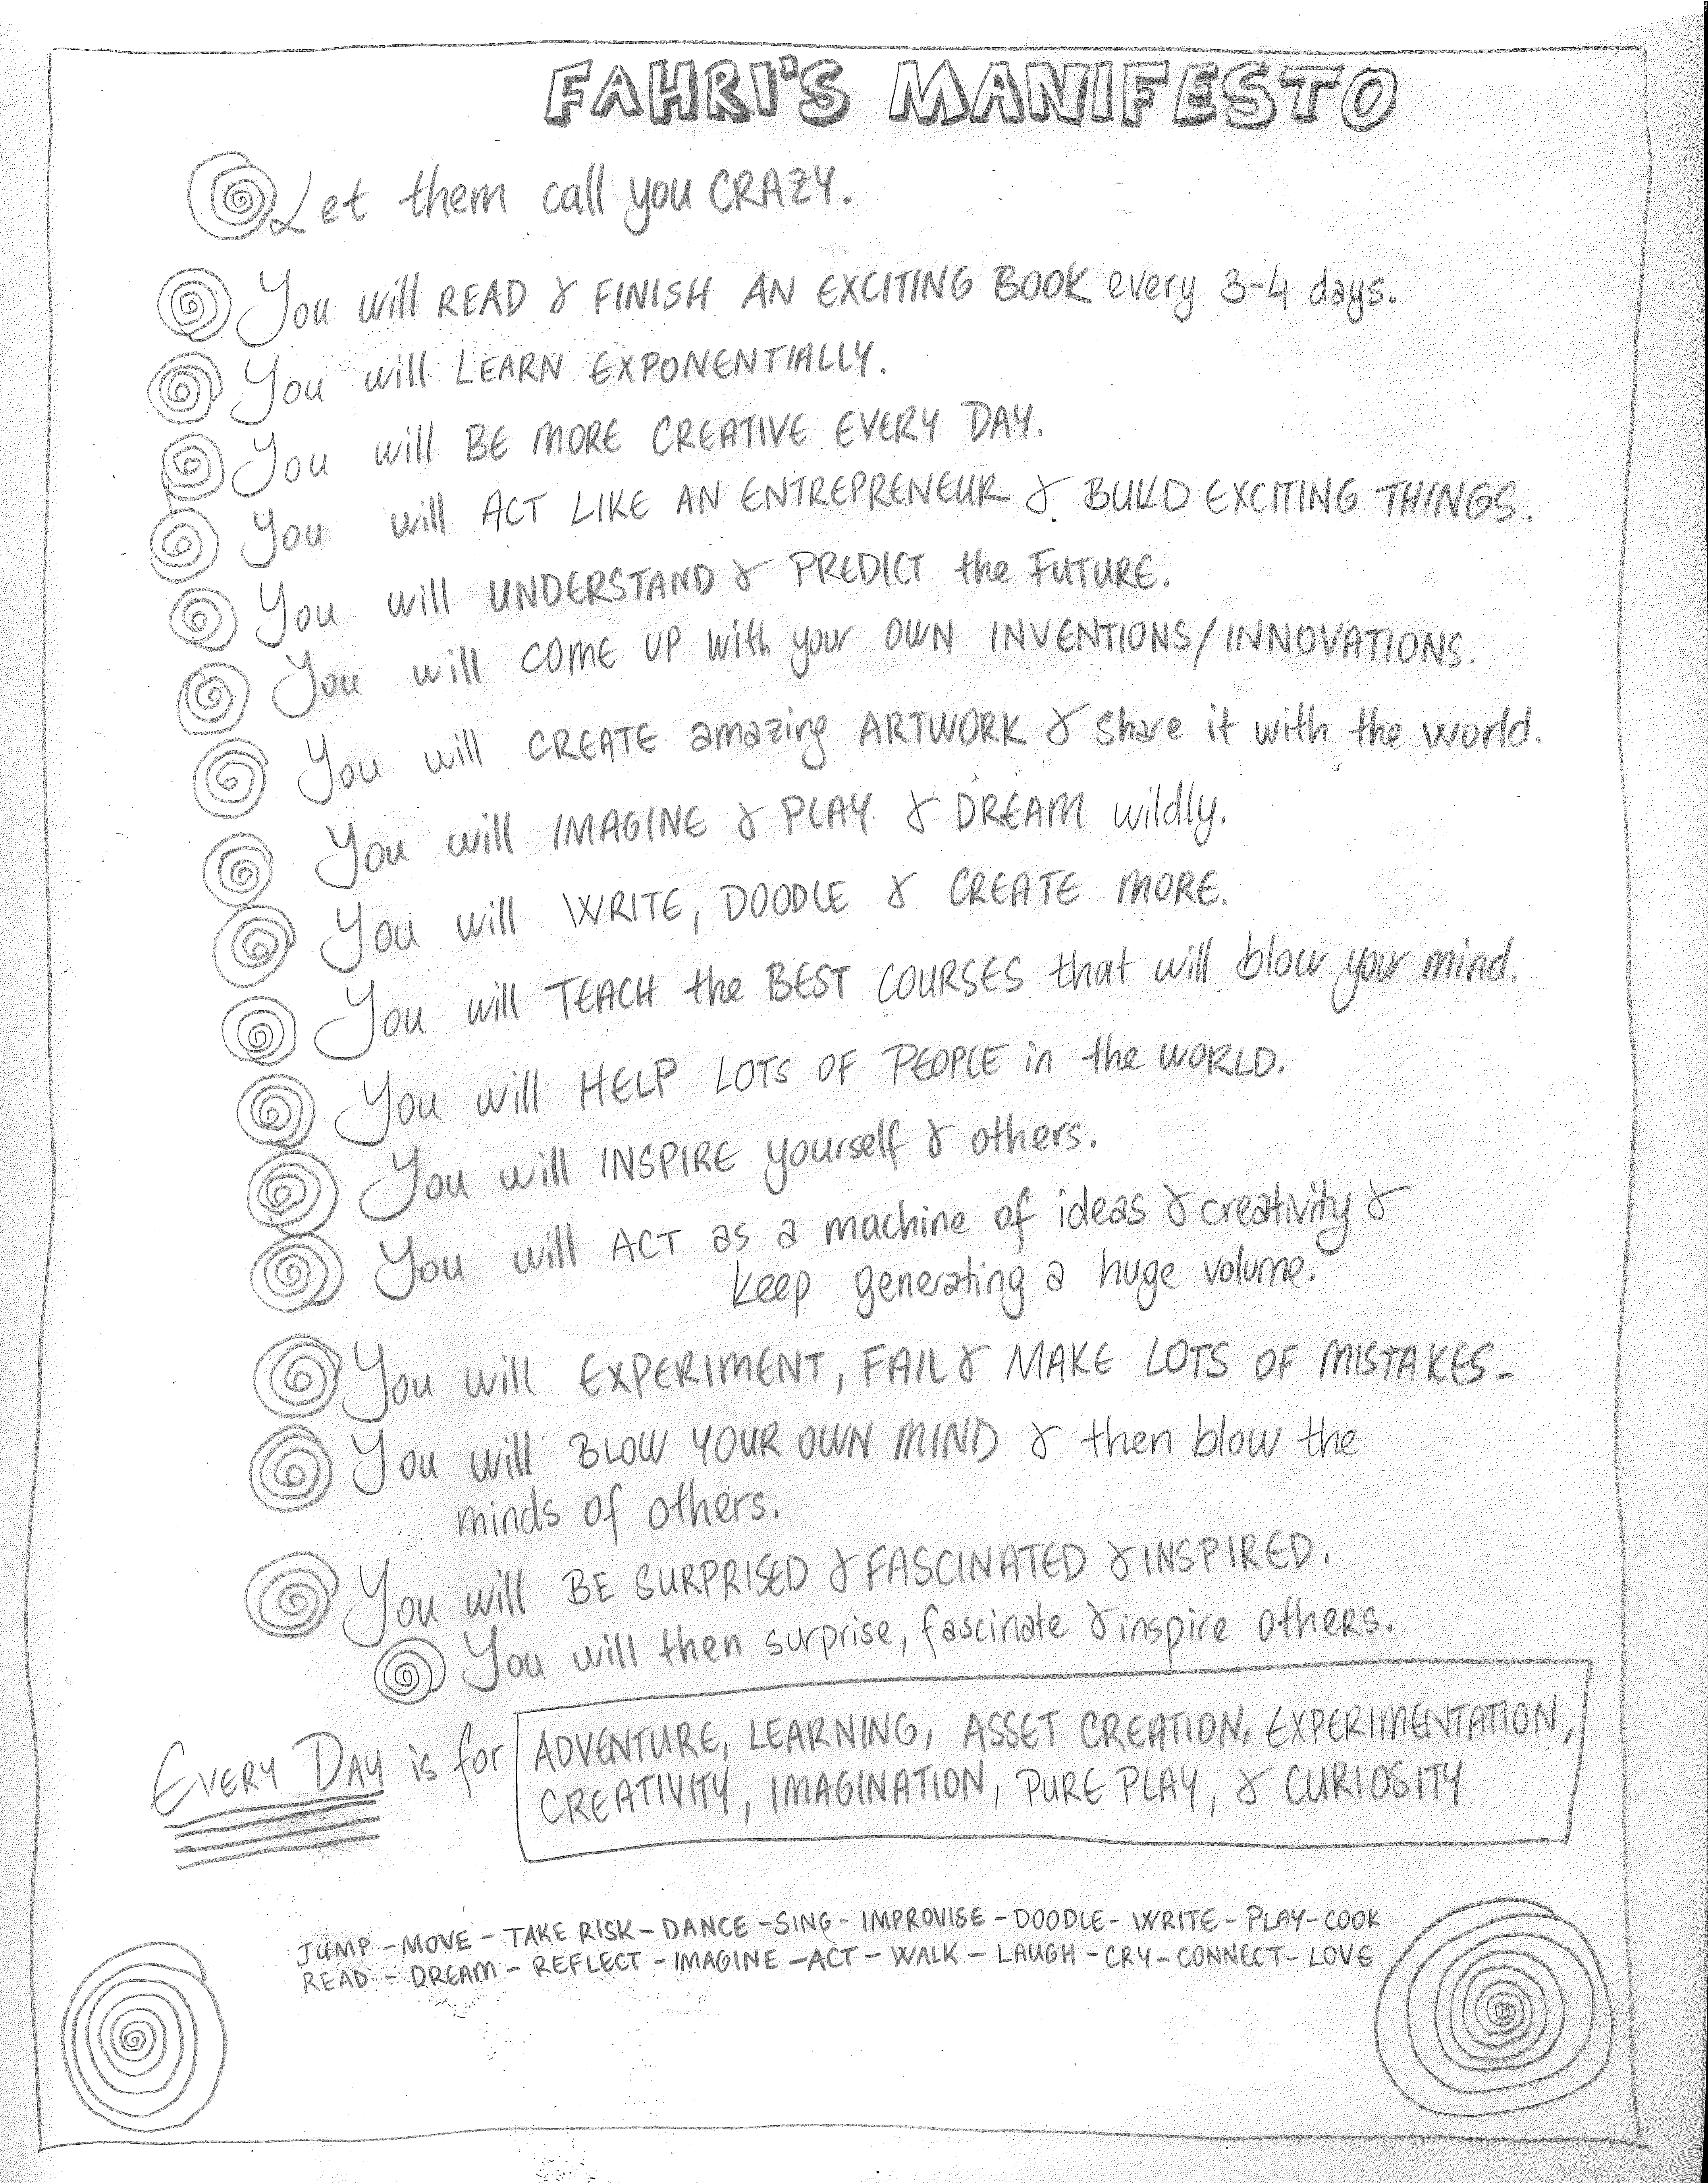 FAHRI'S MANIFESTO
Let them call you CRAZY.
You will READ & FINISH AN EXCITING BOOK every 3-4 days.
You will LEARN EXPONENTIALLY.
You will BE MORE CREATIVE EVERY DAY.
You will ACT LIKE AN ENTREPRENEUR & BUILD EXCITING THINGS.
You will UNDERSTAND & PREDICT the FUTURE.
You will COME UP with your OWN INVENTIONS/INNOVATIONS.
You will CREATE amazing ARTWORK & share it with the world.
You will IMAGINE & PLAY & DREAM wildly.
You will WRITE, DOODLE & CREATE MORE.
You will TEACH the BEST COURSES that will blow your mind.
You will HELP LOTS OF PEOPLE in the WORLD.
You will INSPIRE yourself & others.
You will ACT as a machine of ideas & creativity &
keep generating a huge volume.
You will EXPERIMENT, FAIL & MAKE LOTS OF MISTAKES-
You will BLOW YOUR OWN MIND & then blow the
minds of others.
You will BE SURPRISED & FASCINATED & INSPIRED.
You will then surprise, fascinate & inspire others.
EVERY DAY is for ADVENTURE, LEARNING, ASSET CREATION, EXPERIMENTATION,
CREATIVITY, IMAGINATION, PURE PLAY, & CURIOSITY
JUMP - MOVE - TAKE RISK - DANCE - SING - IMPROVISE - DOODLE - WRITE - PLAY - COOK
READ - DREAM - REFLECT - IMAGINE - ACT - WALK - LAUGH - CRY - CONNECT - LOVE